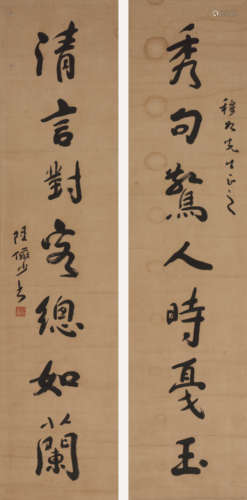 秀句驚人時戛玉
先生正之
清言對客總如蘭
陸儼少書